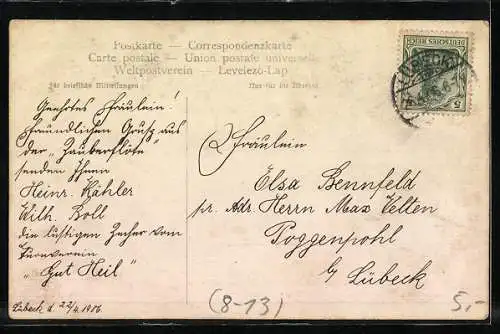 Postkarte — Correspondenzkarte
Carte postale — Union postale universelle
Weltpostverein — Levelező-Lap
Für briefliche Mitteilungen
Nur für die Adresse
DEUTSCHES REICH
5 5
LÜBECK
Geehrtes Fräulein!
Freundlichen Gruß aus
der „Zauberflöte"
senden Ihnen
Heinr. Kähler
Wilh. Boll
die lustigen Zecher vom
Turnverein
„Gut Heil"
Lübeck d. 22/4. 1906
Fräulein
Elsa Bennfeld
pr. Adr. Herrn Max Velten
Poggenpohl
b/ Lübeck
(8-13)
5,-